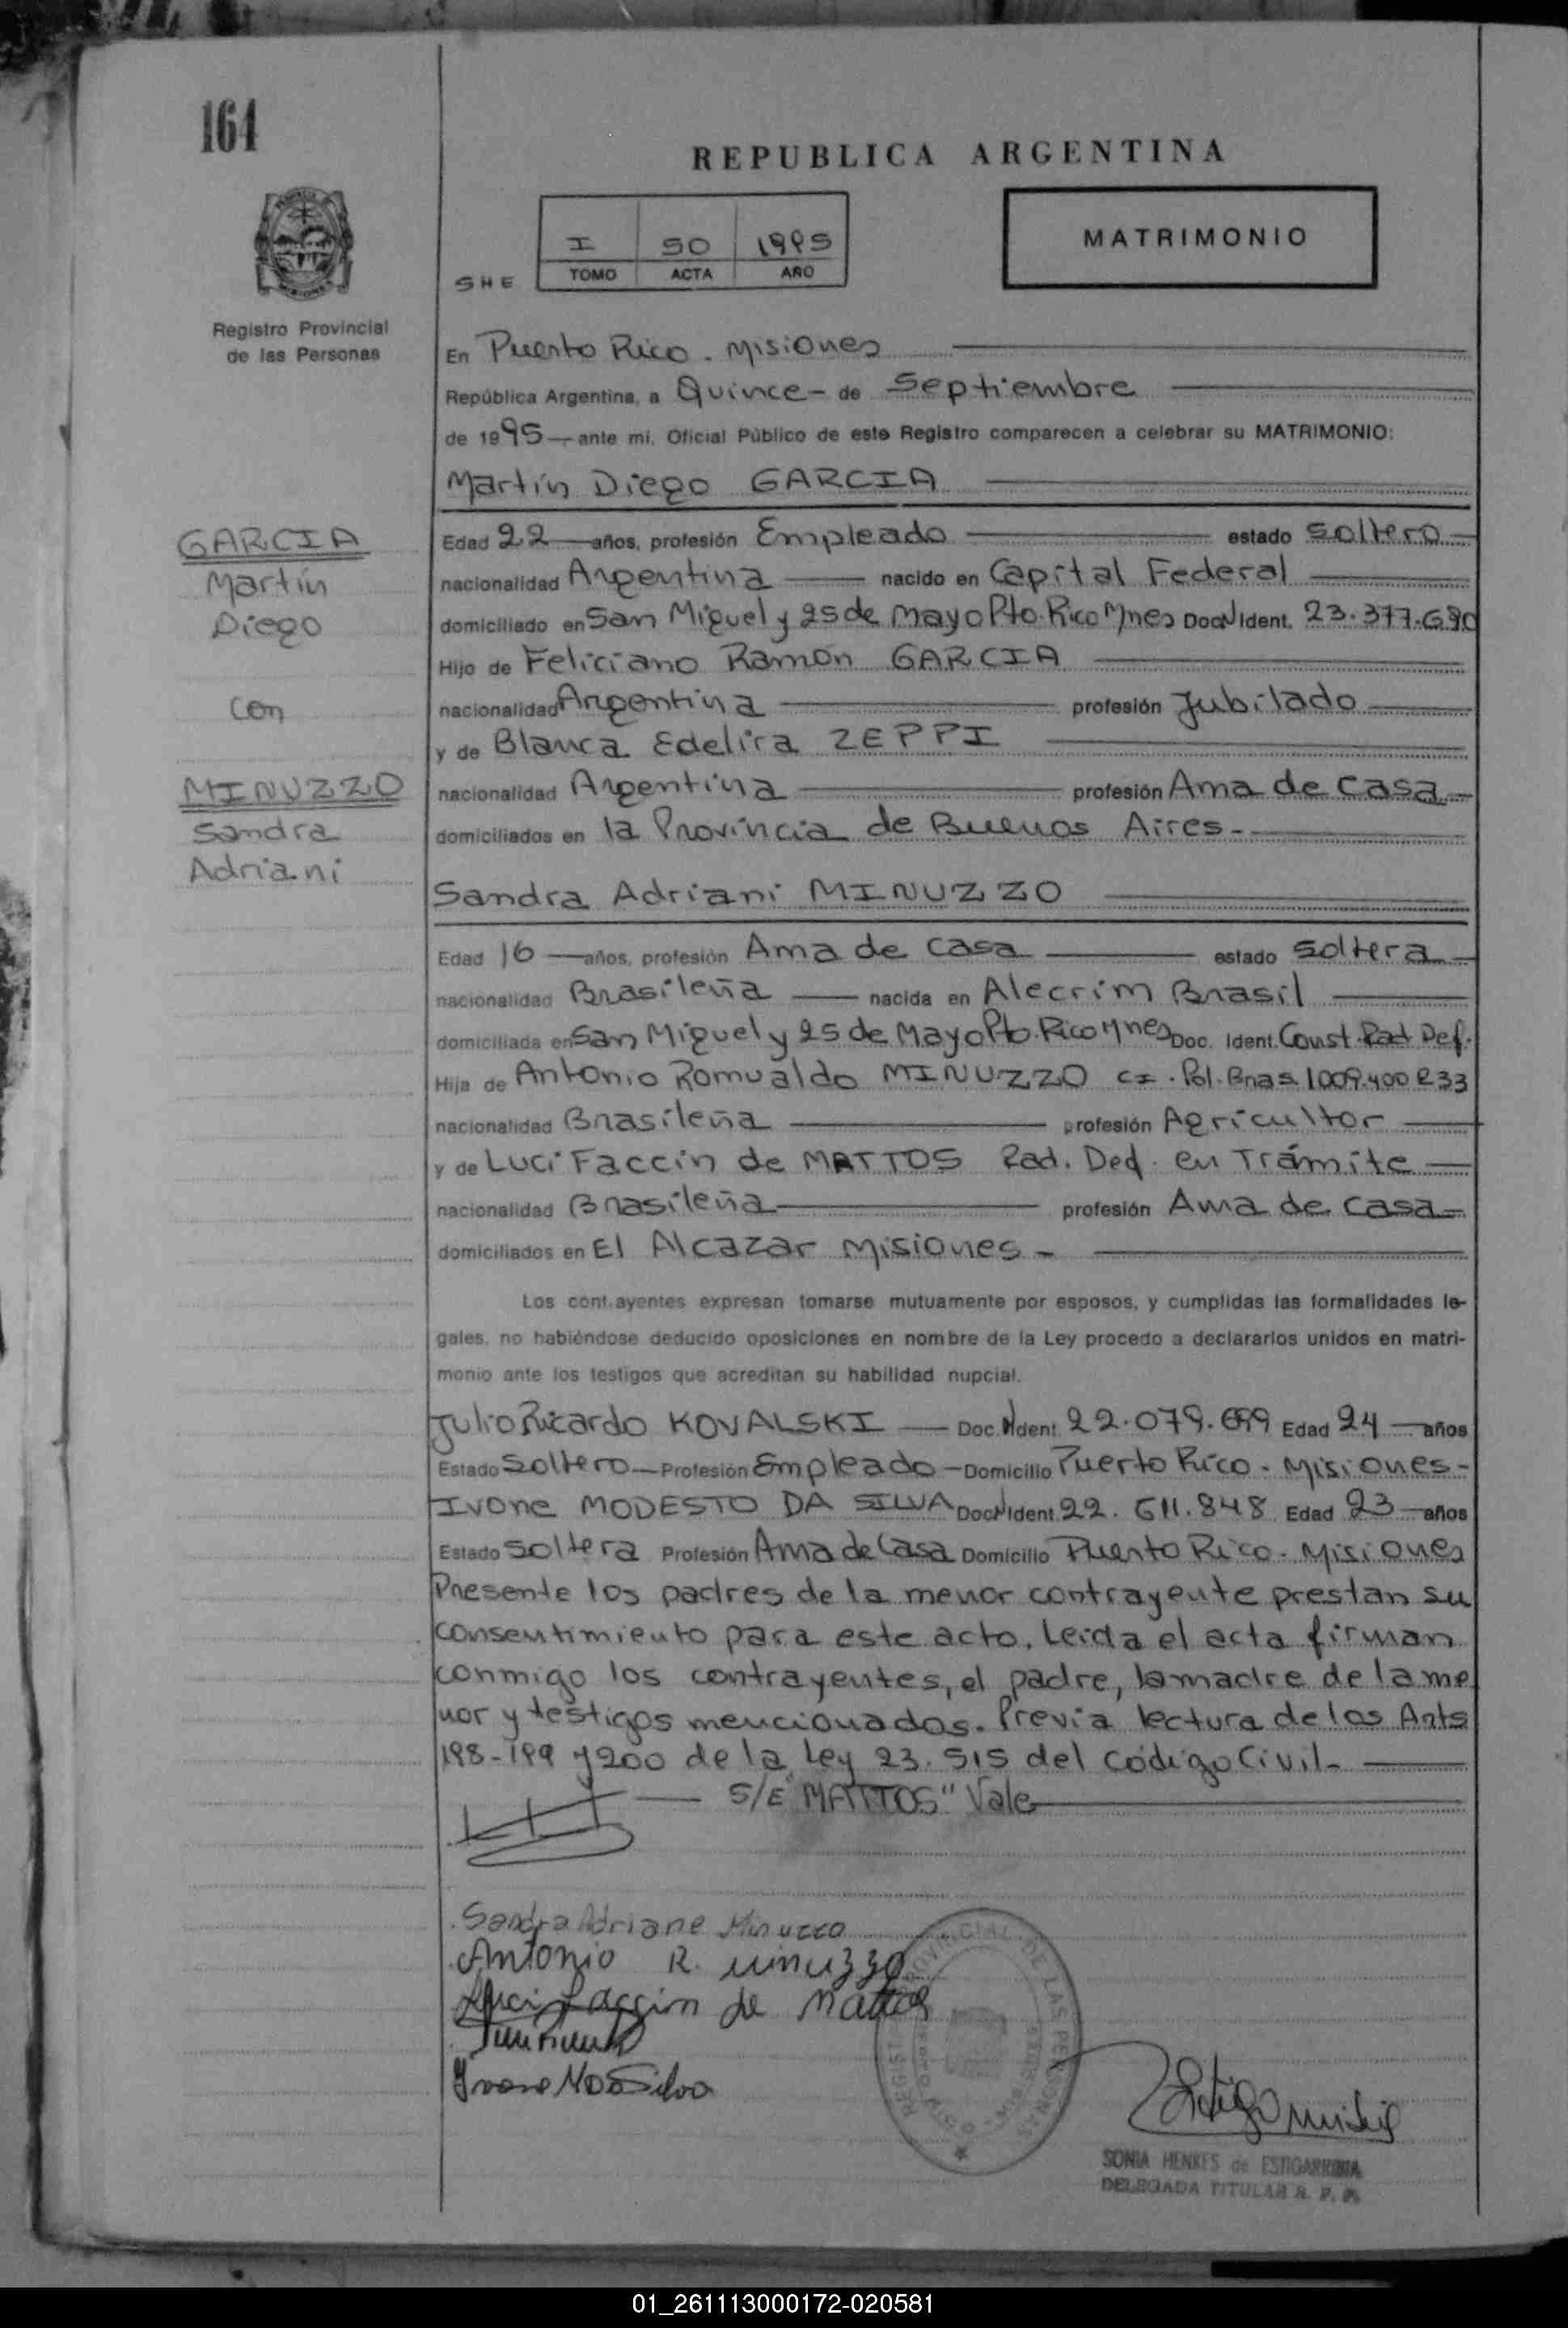 164
REPUBLICA ARGENTINA
I 50 1995
TOMO ACTA AÑO
SHE
MATRIMONIO
Registro Provincial
de las Personas
En Puerto Rico. Misiones
República Argentina, a Quince - de Septiembre
de 1995 ante mi, Oficial Público de este Registro comparecen a celebrar su MATRIMONIO:
Martín Diego GARCIA
GARCIA
Martín
Diego
con
MINUZZO
Sandra
Adriani
Edad 22 años, profesión Empleado estado soltero
nacionalidad Argentina nacido en Capital Federal
domiciliado en San Miguel y 25 de Mayo Pto. Rico Mnes Doc N Ident. 23.377.690
Hijo de Feliciano Ramón GARCIA
nacionalidad Argentina profesión Jubilado
y de Blanca Edelira ZEPPI
nacionalidad Argentina profesión Ama de casa
domiciliados en la Provincia de Buenos Aires.
Sandra Adriani MINUZZO
Edad 16 años, profesión Ama de casa estado soltera
nacionalidad Brasileña nacida en Alecrim Brasil
domiciliada en San Miguel y 25 de Mayo Pto. Rico Mnes Doc. Ident. Const. Rad Def.
Hija de Antonio Romualdo MINUZZO CI. Pol. Bras. 1009.400233
nacionalidad Brasileña profesión Agricultor
y de Luci Faccin de MATTOS Rad. Def. en Trámite
nacionalidad Brasileña profesión Ama de casa
domiciliados en El Alcazar Misiones -
Los contrayentes expresan tomarse mutuamente por esposos, y cumplidas las formalidades le-
gales, no habiéndose deducido oposiciones en nombre de la Ley procedo a declararlos unidos en matri-
monio ante los testigos que acreditan su habilidad nupcial.
Julio Ricardo KOVALSKI Doc. N Ident. 22.079.699 Edad 24 años
Estado Soltero Profesión Empleado - Domicilio Puerto Rico - Misiones -
Ivone MODESTO DA SILVA Doc N Ident. 22.611.848 Edad 23 años
Estado soltera Profesión Ama de Casa Domicilio Puerto Rico - Misiones
Presente los padres de la menor contrayente prestan su
consentimiento para este acto. Leida el acta firman
conmigo los contrayentes, el padre, la madre de la me
nor y testigos mencionados. Previa lectura de los Arts
198-199 y 200 de la Ley 23.515 del código Civil -
S/E "MATTOS" Vale
Sandra Adriane Minuzzo
Antonio R. Minuzzo
Luci Faccin de Mattos
Ivone M Da Silva
REGISTRO PROVINCIAL DE LAS PERSONAS
SONIA HENKES de ESTIGARRIBIA
DELEGADA TITULAR R. P. P.
01_261113000172-020581